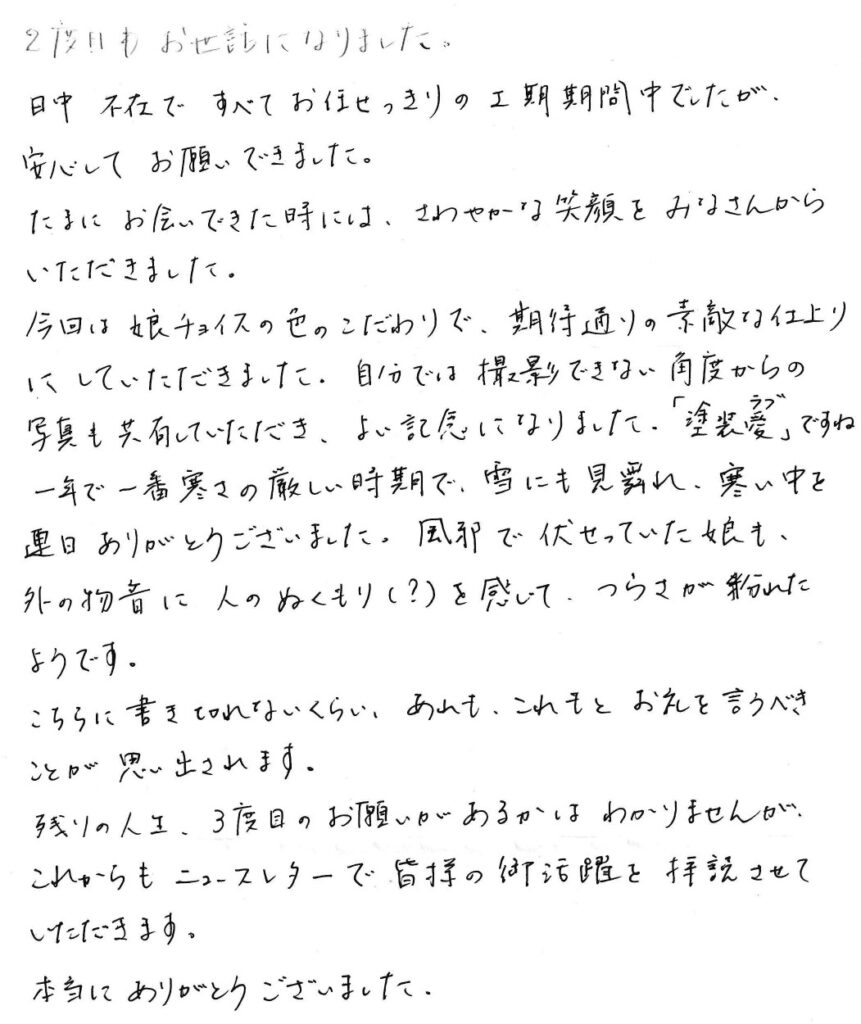 2度目も お世話になりました。
日中 不在で すべて お任せっきりの 工期期間中でしたが、
安心して お願いできました。
たまに お会いできた時には、さわやかな笑顔を みなさんから
いただきました。
今回は 娘チョイスの色のこだわりで、期待通りの素敵な仕上り
に していただきました。自分では 撮影できない 角度からの
写真も 共有していただき、よい記念になりました。「塗装愛(ラブ)」ですね
一年で 一番寒さの厳しい時期で、雪にも見舞れ、寒い中を
連日 ありがとうございました。風邪で 伏せっていた娘も、
外の物音に 人のぬくもり(?)を感じて、つらさが 紛れた
ようです。
こちらに書き切れないくらい、あれも、これもと お礼を言うべき
ことが 思い出されます。
残りの人生、3度目のお願いがあるかは わかりませんが、
これからも ニュースレターで 皆様の御活躍を 拝読させて
いただきます。
本当に ありがとうございました。